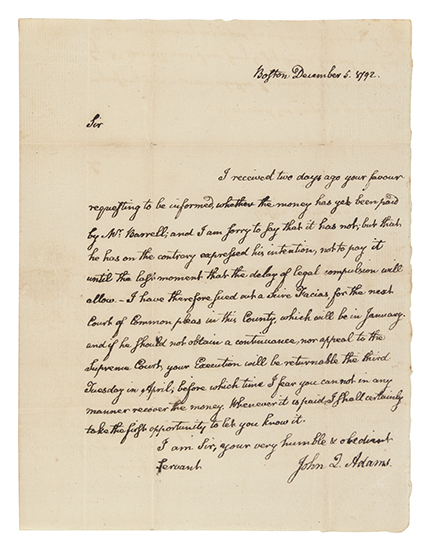 Boston December 5. 1792.
Sir
I received two days ago your favour
requesting to be informed, whether the money has yet been paid
by Mr. Barrell; and I am sorry to say that it has not; but that
he has on the contrary expressed his intention, not to pay it
until the last moment that the delay of legal compulsion will
allow. – I have therefore sued out a Scire Facias for the next
Court of Common pleas in this County, which will be in January.
and if he should not obtain a continuance, nor appeal to the
Supreme Court, your Execution will be returnable the third
Tuesday in April, before which time I fear you cannot in any
manner recover the money. Whenever it is paid, I shall certainly
take the first opportunity to let you know it.
I am Sir, your very humble & obedient
servant
John Q. Adams.